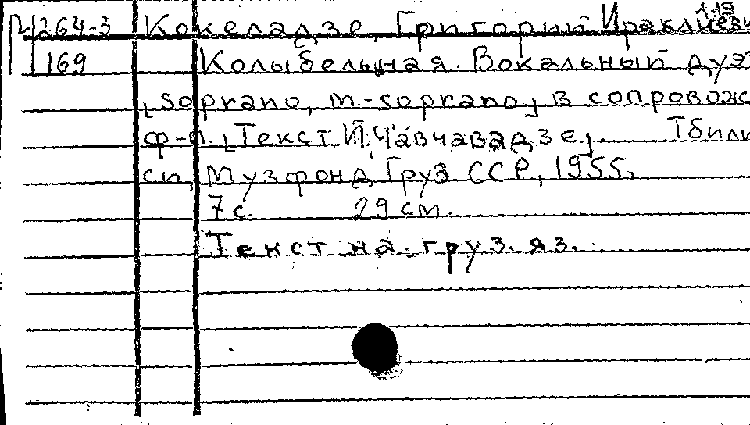 М 264-3 Кокеладзе, Григорий Ираклиеви
169 Колыбельная. Вокальный дуэ
[soprano, m-soprano] в сопровож
ф-п. [Текст И. Чавчавадзе]. Тбили
си, Музфонд Груз ССР, 1955.
7 с. 29 см.
Текст на груз. яз.